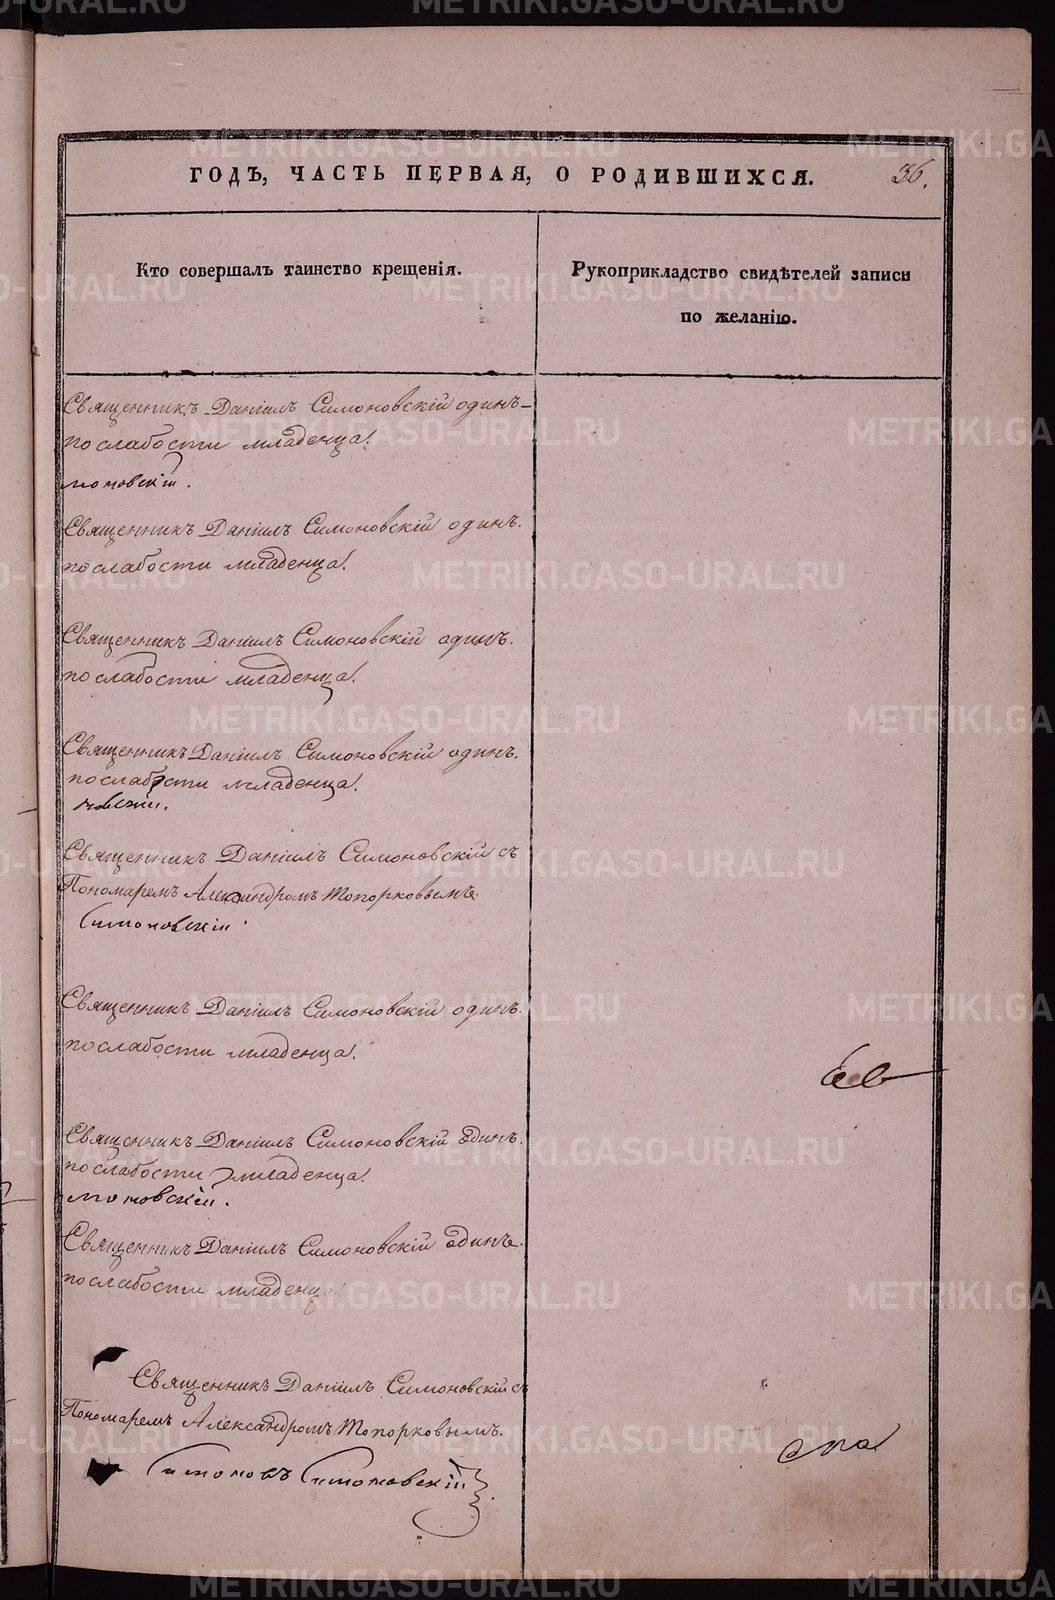 ГОДЪ, ЧАСТЬ ПЕРВАЯ, О РОДИВШИХСЯ.
36.
Кто совершалъ таинство крещенія.
Рукоприкладство свидѣтелей записи
по желанію.
Священникъ Даніилъ Симоновскій одинъ
по слабости младенца.
моновскій.
Священникъ Даніилъ Симоновскій одинъ.
по слабости младенца.
Священникъ Даніилъ Симоновскій одинъ.
по слабости младенца.
Священникъ Даніилъ Симоновскій одинъ.
по слабости младенца.
новскій.
Священникъ Даніилъ Симоновскій съ
Пономаремъ Александромъ Топорковымъ.
Симоновскій
Священникъ Даніилъ Симоновскій одинъ.
по слабости младенца.
Священникъ Даніилъ Симоновскій одинъ.
по слабости младенца.
моновскій.
Священникъ Даніилъ Симоновскій одинъ.
по слабости младенца
Священникъ Даніилъ Симоновскій съ
Пономаремъ Александромъ Топорковымъ.
Симоновскій
METRIKI.GASO-URAL.RU